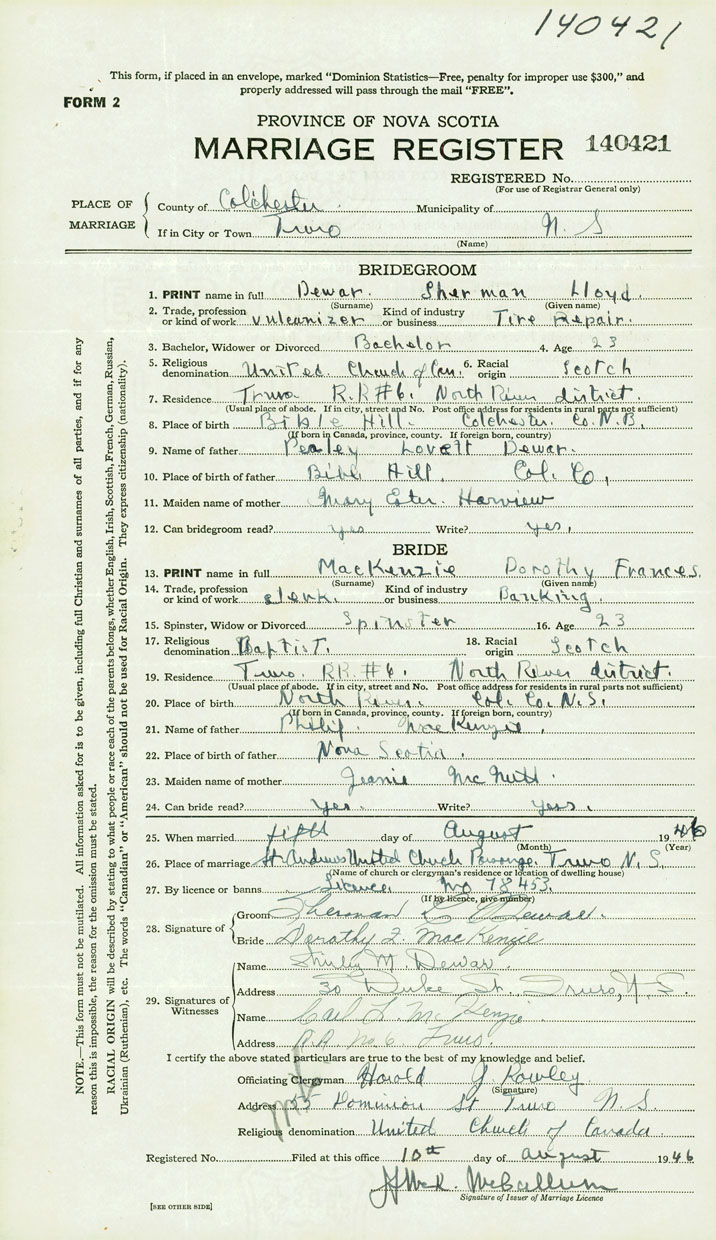 140421
This form, if placed in an envelope, marked “Dominion Statistics—Free, penalty for improper use $300,” and
properly addressed will pass through the mail “FREE”.
FORM 2
PROVINCE OF NOVA SCOTIA
MARRIAGE REGISTER 140421
REGISTERED No.
(For use of Registrar General only)
PLACE OF MARRIAGE
County of Colchester. Municipality of
If in City or Town Truro N. S
(Name)
BRIDEGROOM
1. PRINT name in full Dewar. Sherman Lloyd.
(Surname) (Given name)
2. Trade, profession or kind of work vulcanizer Kind of industry or business Tire repair.
3. Bachelor, Widower or Divorced Bachelor 4. Age 23
5. Religious denomination United Church of Can. 6. Racial origin Scotch
7. Residence Truro R.R#6. North River district.
(Usual place of abode. If in city, street and No. Post office address for residents in rural parts not sufficient)
8. Place of birth Bible Hill. Colchester. Co. N.B.
(If born in Canada, province, county. If foreign born, country)
9. Name of father Pearley Lovett Dewar.
10. Place of birth of father Bible Hill. Col. Co,
11. Maiden name of mother Mary Ester. Harview
12. Can bridegroom read? yes Write? yes,
BRIDE
13. PRINT name in full MacKenzie Dorothy Frances.
(Surname) (Given name)
14. Trade, profession or kind of work clerk. Kind of industry or business Banking.
15. Spinster, Widow or Divorced Spinster 16. Age 23
17. Religious denomination Baptist. 18. Racial origin Scotch
19. Residence Truro. RR.#6. North River district.
(Usual place of abode. If in city, street and No. Post office address for residents in rural parts not sufficient)
20. Place of birth North River. Col. Co. N.S.
(If born in Canada, province, county. If foreign born, country)
21. Name of father Philip. MacKenzie.
22. Place of birth of father Nova Scotia.
23. Maiden name of mother Jeanie McNutt.
24. Can bride read? Yes. Write? Yes.
25. When married fifth day of August 1946
(Month) (Year)
26. Place of marriage St Andrews United Church Truro N. S.
(Name of church or clergyman's residence or location of dwelling house)
27. By licence or banns Licence. No 78453.
(If by licence, give number)
28. Signature of
Groom Sherman L Dewar.
Bride Dorothy F. MacKenzie
29. Signatures of Witnesses
Name Shirley M. Dewar
Address 30 Duke St. Truro, N.S.
Name Carl L. McKenzie
Address R.R. No. 6. Truro.
I certify the above stated particulars are true to the best of my knowledge and belief.
Officiating Clergyman Harold J. Rowley.
(Signature)
Address 55 Dominion St Truro N. S.
Religious denomination United Church of Canada.
Registered No. Filed at this office 10th day of August 1946
McCallum
Signature of Issuer of Marriage Licence
[SEE OTHER SIDE]
NOTE.—This form must not be mutilated. All information asked for is to be given, including full Christian and surnames of all parties, and if for any
reason this is impossible, the reason for the omission must be stated.
RACIAL ORIGIN will be described by stating to what people or race each of the parents belongs, whether English, Irish, Scottish, French, German, Russian,
Ukrainian (Ruthenian), etc. The words “Canadian” or “American” should not be used for Racial Origin. They express citizenship (nationality).